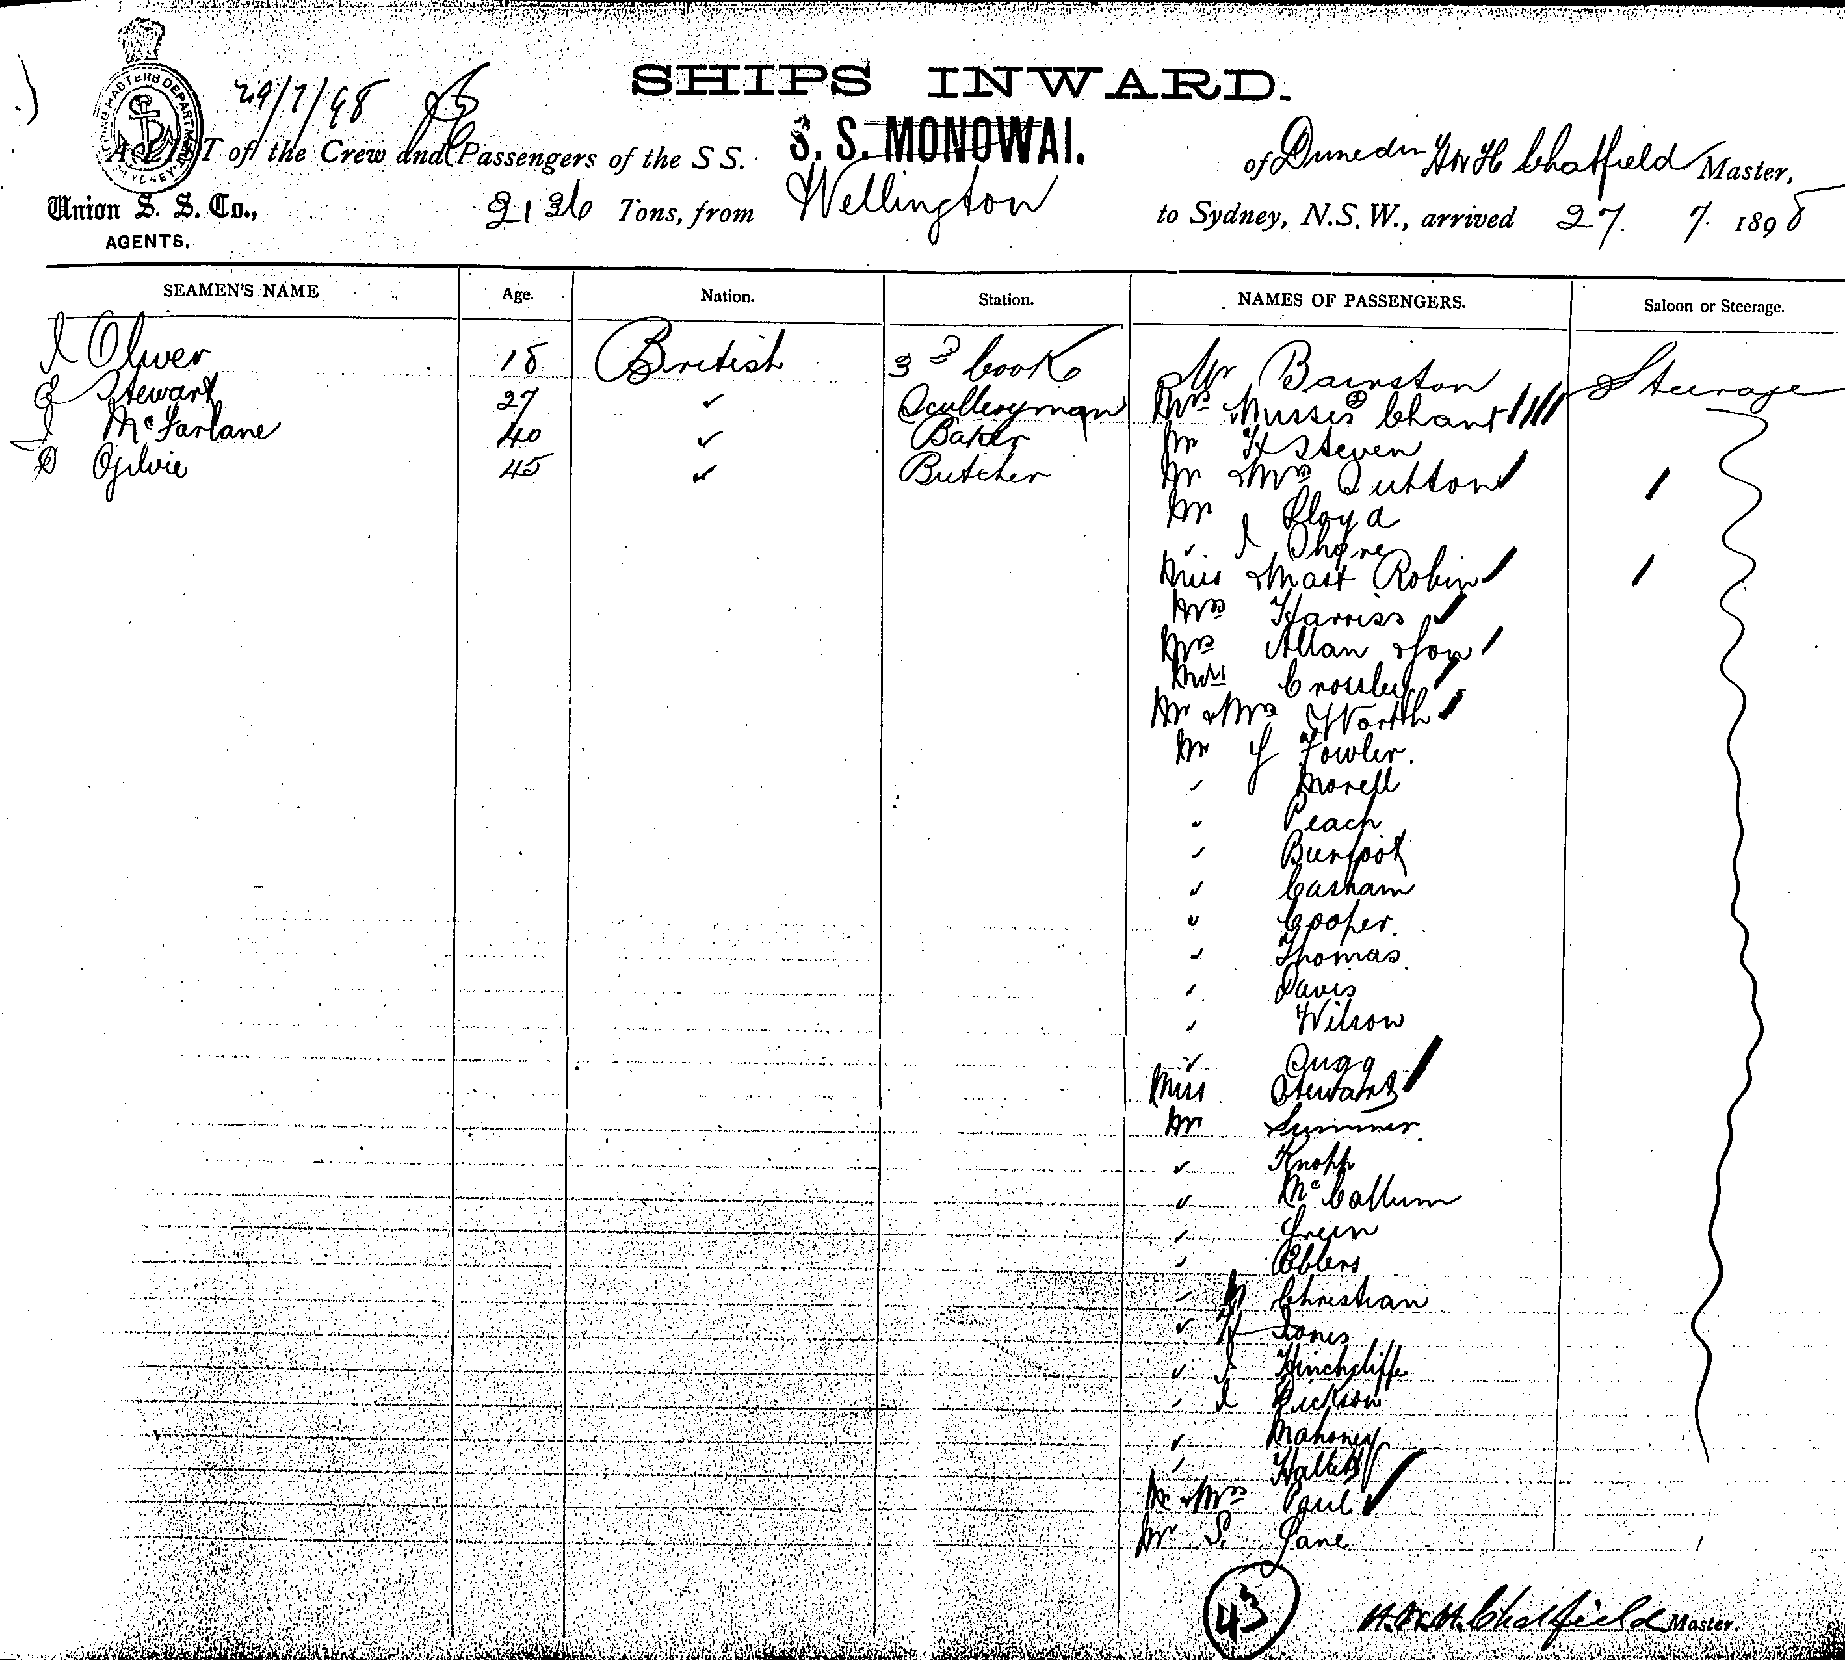 SHIPS INWARD.
29/7/98
A LIST of the Crew and Passengers of the S S. S. S. MONOWAI. of Dunedin H W H Chatfield Master,
Union S. S. Co., AGENTS, 2126 Tons, from Wellington to Sydney, N.S.W., arrived 27. 7. 1898
SEAMEN'S NAME Age. Nation. Station. NAMES OF PASSENGERS. Saloon or Steerage.
J Oliver 18 British 3rd Cook Mr Bairston Steerage
Stewart 27 ✓ Sculleryman Mrs & Misses Chant
J McFarlane 40 ✓ Baker Mr H Steven
D Ogilvie 45 ✓ Butcher Mr & Mrs Sutton
Mr Lloyd
✓ J Shore
Miss & Mast Robin
Mrs Harriss
Mrs Allan & Son
Miss Crossley
Mr & Mrs Worth
Mr G Fowler.
✓ Morell
✓ Peach
✓ Burfoot
✓ Casham
✓ Cooper.
✓ Thomas
✓ Davis
✓ Wilson
✓ Sugg
Miss Stewart
Mr Summer
✓ Knopp
✓ McCallum
✓ Green
✓ Ehlers
✓ Christian
✓ Jones
✓ J Hinchcliffe
✓ J Dickson
✓ Mahoney
✓ Hallett
Mr & Mrs Paul
Mr S. Lane
43
H.W.H. Chatfield Master.